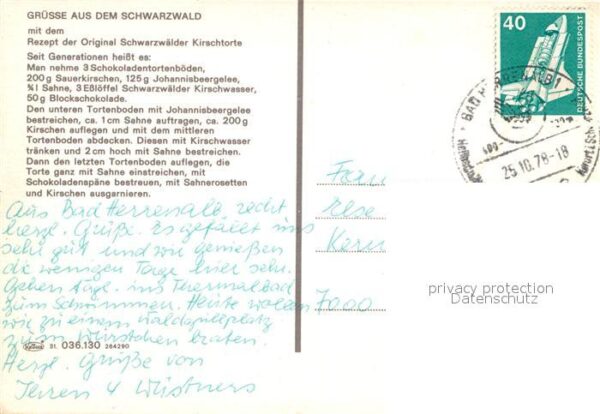 GRÜSSE AUS DEM SCHWARZWALD
mit dem
Rezept der Original Schwarzwälder Kirschtorte
Seit Generationen heißt es:
Man nehme 3 Schokoladentortenböden,
200 g Sauerkirschen, 125 g Johannisbeergelee,
¾ l Sahne, 3 Eßlöffel Schwarzwälder Kirschwasser,
50 g Blockschokolade.
Den unteren Tortenboden mit Johannisbeergelee
bestreichen, ca. 1 cm Sahne auftragen, ca. 200 g
Kirschen auflegen und mit dem mittleren
Tortenboden abdecken. Diesen mit Kirschwasser
tränken und 2 cm hoch mit Sahne bestreichen.
Dann den letzten Tortenboden auflegen, die
Torte ganz mit Sahne einstreichen, mit
Schokoladenspäne bestreuen, mit Sahnerosetten
und Kirschen ausgarnieren.
Aus Bad Herrenalb recht
herzl. Grüße. Es gefällt uns
sehr gut und wir genießen
die wenigen Tage hier sehr.
Gehen tägl. ins Thermalbad
zum Schwimmen. Heute wollen
wir zu einem Waldspielplatz
zum Würstchen braten.
Herzl. Grüße von
Ihren 4
31. 036.130 264290
40
DEUTSCHE BUNDESPOST
BAD HERRENALB
25.10.78-18
Frau
Else
Kern
7000
privacy protection
Datenschutz